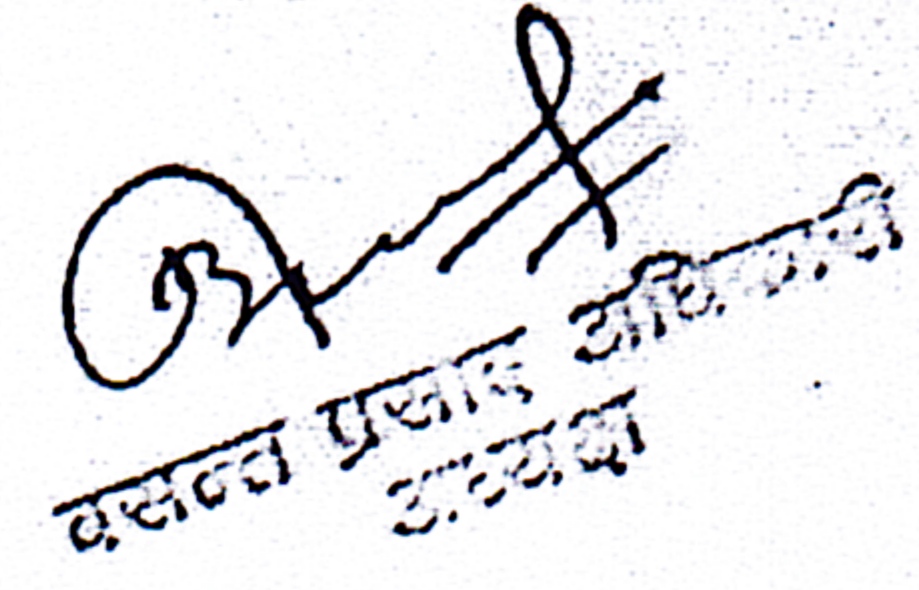 वसन्त प्रसाद अधिकारी
अध्यक्ष